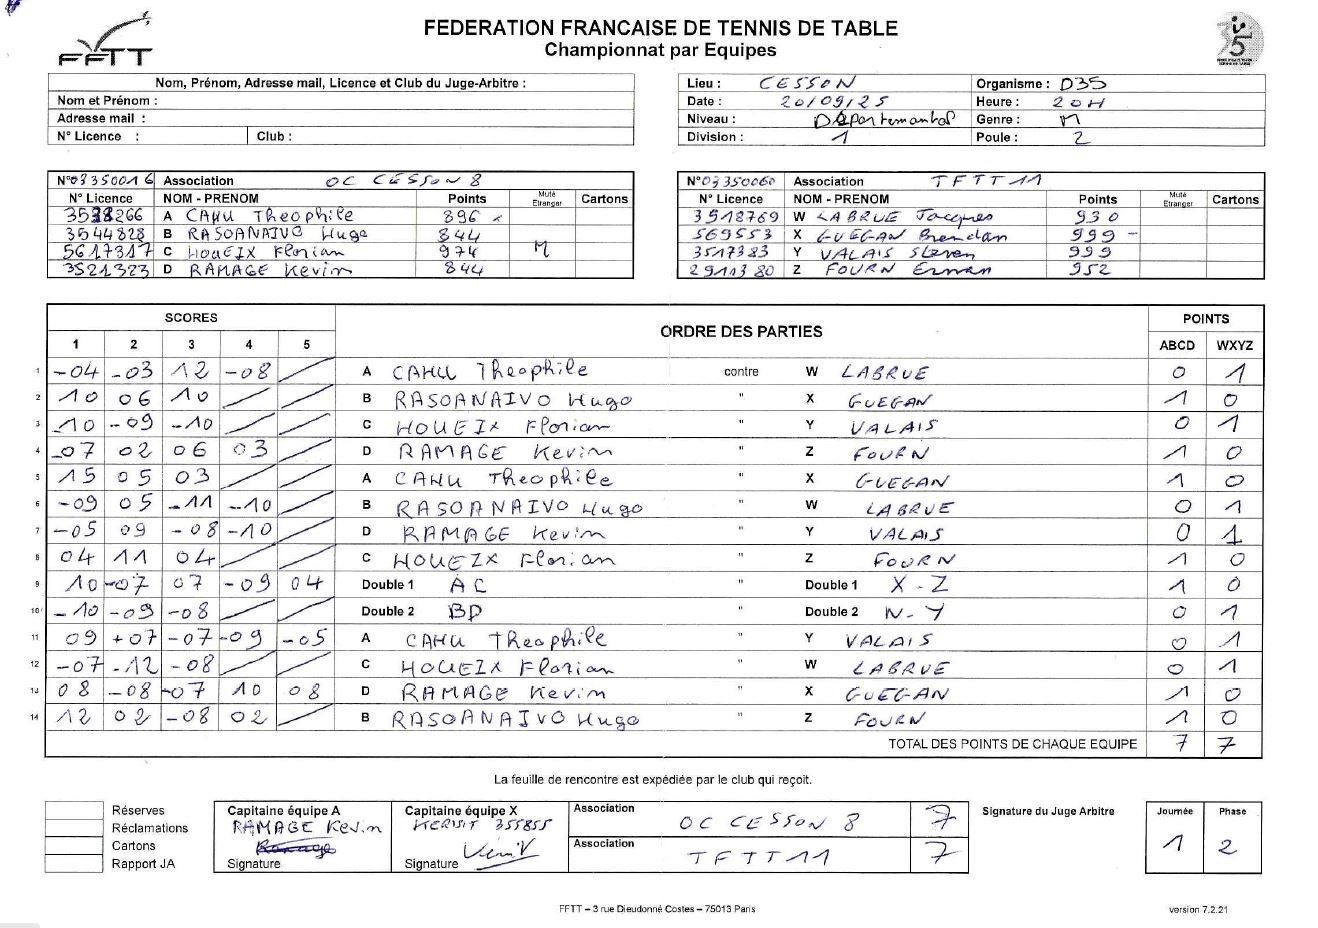 FFTT
FEDERATION FRANCAISE DE TENNIS DE TABLE
Championnat par Equipes
Nom, Prénom, Adresse mail, Licence et Club du Juge-Arbitre :
Nom et Prénom :
Adresse mail :
N° Licence : Club :
Lieu : CESSON Organisme : D35
Date : 20/09/25 Heure : 20H
Niveau : Départemental Genre : M
Division : 1 Poule : 2
N° 03350016 Association OC CESSON 8
N° Licence NOM - PRENOM Points Muté Etranger Cartons
3538266 A CAHU Theophile 896
3544828 B RASOANAIVO Hugo 844
5617317 C HOUEIX Florian 974 M
3521323 D RAMAGE Kevin 844
N° 03350060 Association TFTT 11
N° Licence NOM - PRENOM Points Muté Etranger Cartons
3518769 W LABRUE Jacques 930
569553 X GUEGAN Brendan 999 -
3517383 Y VALAIS Steven 999
2911380 Z FOURN Erwan 952
SCORES ORDRE DES PARTIES POINTS
1 2 3 4 5 ABCD WXYZ
1 -04 -03 12 -08 A CAHU Theophile contre W LABRUE 0 1
2 10 06 10 B RASOANAIVO Hugo " X GUEGAN 1 0
3 -10 -09 -10 C HOUEIX Florian " Y VALAIS 0 1
4 -07 02 06 03 D RAMAGE Kevin " Z FOURN 1 0
5 15 05 03 A CAHU Theophile " X GUEGAN 1 0
6 -09 05 -11 -10 B RASOANAIVO Hugo " W LABRUE 0 1
7 -05 09 -08 -10 D RAMAGE Kevin " Y VALAIS 0 1
8 04 11 04 C HOUEIX Florian " Z FOURN 1 0
9 10 -07 07 -09 04 Double 1 AC " Double 1 X-Z 1 0
10 -10 -09 -08 Double 2 BD " Double 2 W-Y 0 1
11 09 +07 -07 -09 -05 A CAHU Theophile " Y VALAIS 0 1
12 -07 -12 -08 C HOUEIX Florian " W LABRUE 0 1
13 08 -08 -07 10 08 D RAMAGE Kevin " X GUEGAN 1 0
14 12 02 -08 02 B RASOANAIVO Hugo " Z FOURN 1 0
TOTAL DES POINTS DE CHAQUE EQUIPE 7 7
La feuille de rencontre est expédiée par le club qui reçoit.
Réserves
Réclamations
Cartons
Rapport JA
Capitaine équipe A
RAMAGE Kevin
Signature
Capitaine équipe X
355855
Signature
Association OC CESSON 8 7
Association TFTT 11 7
Signature du Juge Arbitre
Journée Phase
1 2
FFTT – 3 rue Dieudonné Costes – 75013 Paris
version 7.2.21